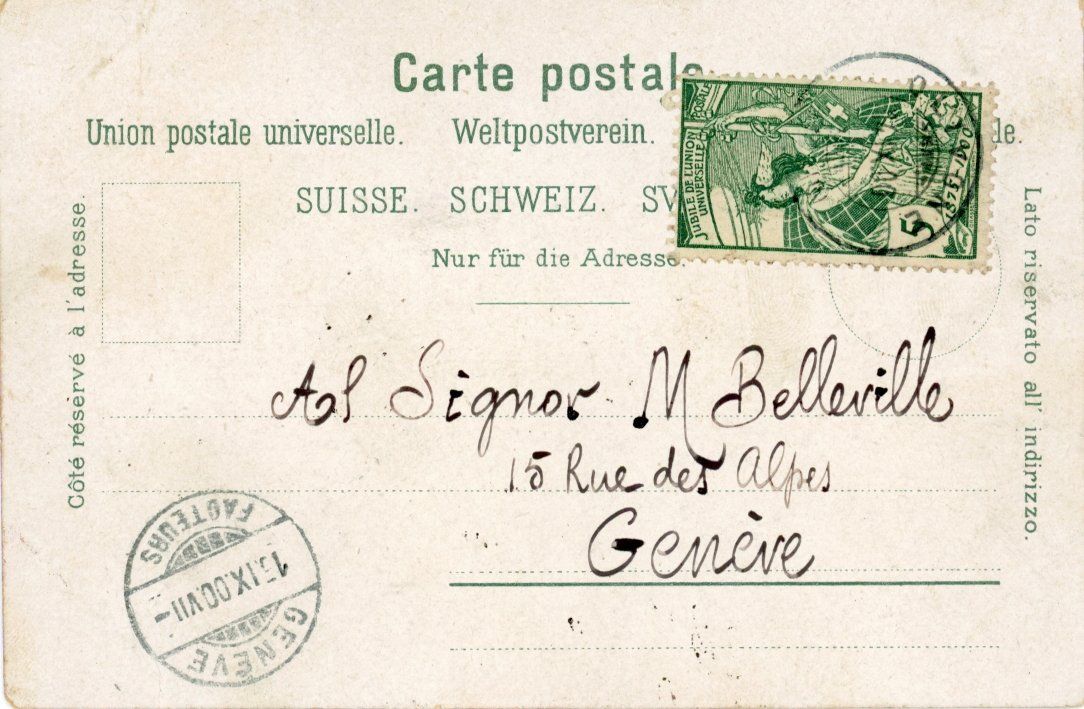 Carte postale
Union postale universelle. Weltpostverein. le.
SUISSE. SCHWEIZ. SV
Nur für die Adresse.
Côté réservé à l'adresse.
Lato riservato all' indirizzo.
JUBILÉ DE L'UNION
UNIVERSELLE POSTALE
1875-1900
5
Al Signor M Belleville
15 Rue des Alpes
Genève
FACTEURS
15.IX.00.VII-
GENÈVE